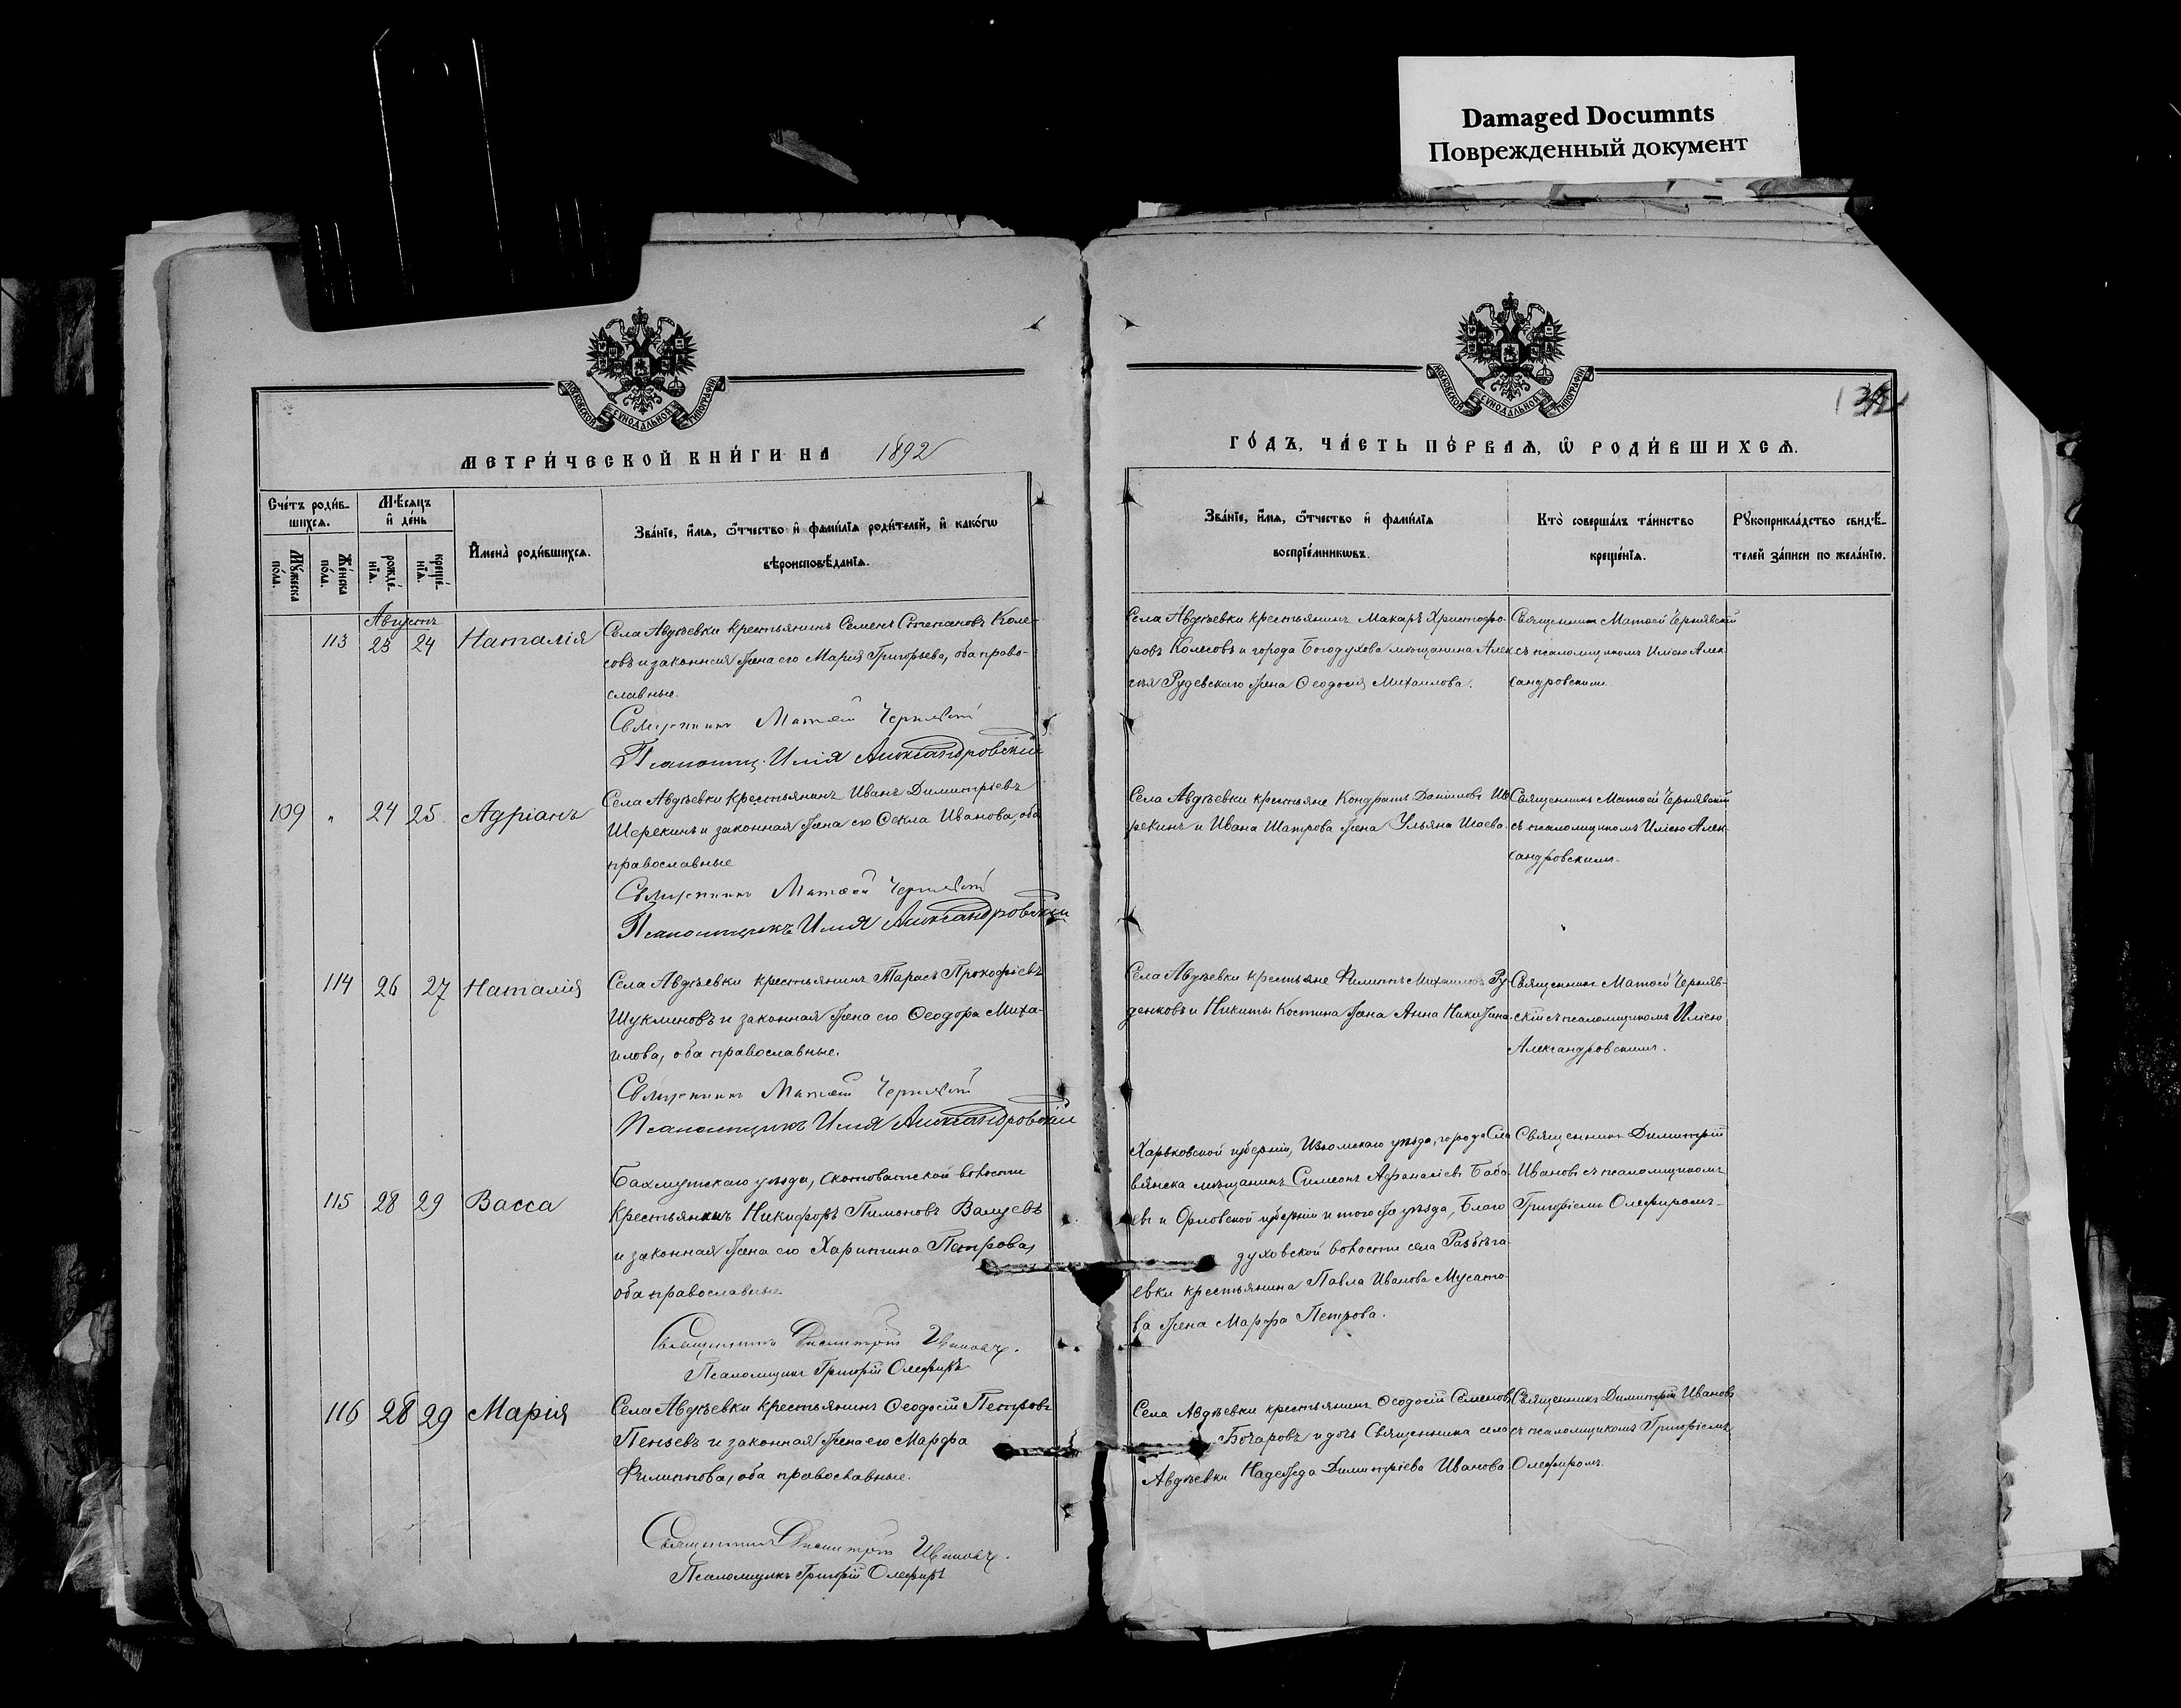 Damaged Documnts
Поврежденный документ
МОСКОВСКОЙ СѴНОДАЛЬНОЙ ТИПОГРАФІИ
МОСКОВСКОЙ СѴНОДАЛЬНОЙ ТИПОГРАФІИ
МЕТРИ́ЧЕСКОЙ КНИ́ГИ НА 1892
ГО́ДЪ, ЧА́СТЬ ПЕ́РВАѦ, Ѿ РОДИ́ВШИХСѦ.
Сче́тъ роди́в-
шихсѧ.
Мꙋ́жеска
по́ла.
Же́нска
по́ла.
Мѣ́сѧцъ
и҆ де́нь
рожде́-
нїѧ.
креще́-
нїѧ.
И҆мена̀ роди́вшихсѧ.
Зва́нїе, и҆́мѧ, ѻ҆́тчество и҆ фами́лїѧ роди́телей, и҆ како́гѡ
вѣроисповѣ́данїѧ.
Зва́нїе, и҆́мѧ, ѻ҆́тчество и҆ фами́лїѧ
воспрїе́мникѡвъ.
Кто̀ соверша́лъ та́инство
креще́нїѧ.
Рꙋкоприкла́дство свидѣ́-
телей за́писи по жела́нїю.
Августъ
113 23 24 Наталія
Села Авдѣевки крестьянинъ Семенъ Степановъ Коле-
совъ и законная жена его Марія Григорьева, оба право-
славные.
Священникъ Матѳей Чернявскій
Псаломщ. Илія Александровскій
Села Авдѣевки крестьянинъ Макаръ Христофо-
ровъ Колесовъ и города Богодухова мѣщанина Алек-
сѣя Рудевскаго жена Ѳеодосія Михаилова.
Священникъ Матѳей Чернявскій
съ псаломщикомъ Иліею Алек-
сандровскимъ.
109 " 24 25 Адріанъ
Села Авдѣевки крестьянинъ Иванъ Димитріевъ
Шерекинъ и законная жена его Ѳекла Иванова, оба
православные
Священникъ Матѳей Чернявскій
Псаломщикъ Илія Александровскій
Села Авдѣевки крестьяне Кондратъ Даніиловъ Ше-
рекинъ и Ивана Шатрова жена Ульяна Исаева.
Священникъ Матѳей Чернявскій
съ псаломщикомъ Иліею Алек-
сандровскимъ.
114 26 27 Наталія
Села Авдѣевки крестьянинъ Тарасъ Прокофіевъ
Шукминовъ и законная жена его Ѳеодора Миха-
илова, оба православные.
Священникъ Матѳей Чернявскій
Псаломщикъ Илія Александровскій
Села Авдѣевки крестьяне Филиппъ Михаиловъ Ру-
денковъ и Никиты Костина жена Анна
Священникъ Матѳей Черняв-
скій съ псаломщикомъ Иліею
Александровскимъ.
115 28 29 Васса
Бахмутскаго уѣзда, Скотоватской волости
крестьянинъ Никифоръ Пимоновъ Валуевъ
и законная жена его Харитина Петрова,
оба православные.
Священникъ Димитрій Ивановъ.
Псаломщикъ Григорій Олефиръ
Харьковской губерніи, Изюмскаго уѣзда, города Сла-
вянска мѣщанинъ Симеонъ Афанасіевъ Баба-
евъ и Орловской губерніи и того же уѣзда, Благо-
духовской волости села Разбѣга-
евки крестьянина Павла Иванова Мусато-
ва жена Марфа Петрова.
Священникъ Димитрій
Ивановъ съ псаломщикомъ
Григоріемъ Олефиромъ.
116 28 29 Марія
Села Авдѣевки крестьянинъ Ѳеодосій Петровъ
Пеньевъ и законная жена его Марфа
Филиппова, оба православные.
Священникъ Димитрій Ивановъ.
Псаломщикъ Григорій Олефиръ
Села Авдѣевки крестьянинъ Ѳеодосій Семеновъ
Бочаровъ и дочь Священника села
Авдѣевки Надежда Димитріева Иванова
Священникъ Димитрій Ивановъ
съ псаломщикомъ Григоріемъ
Олефиромъ.